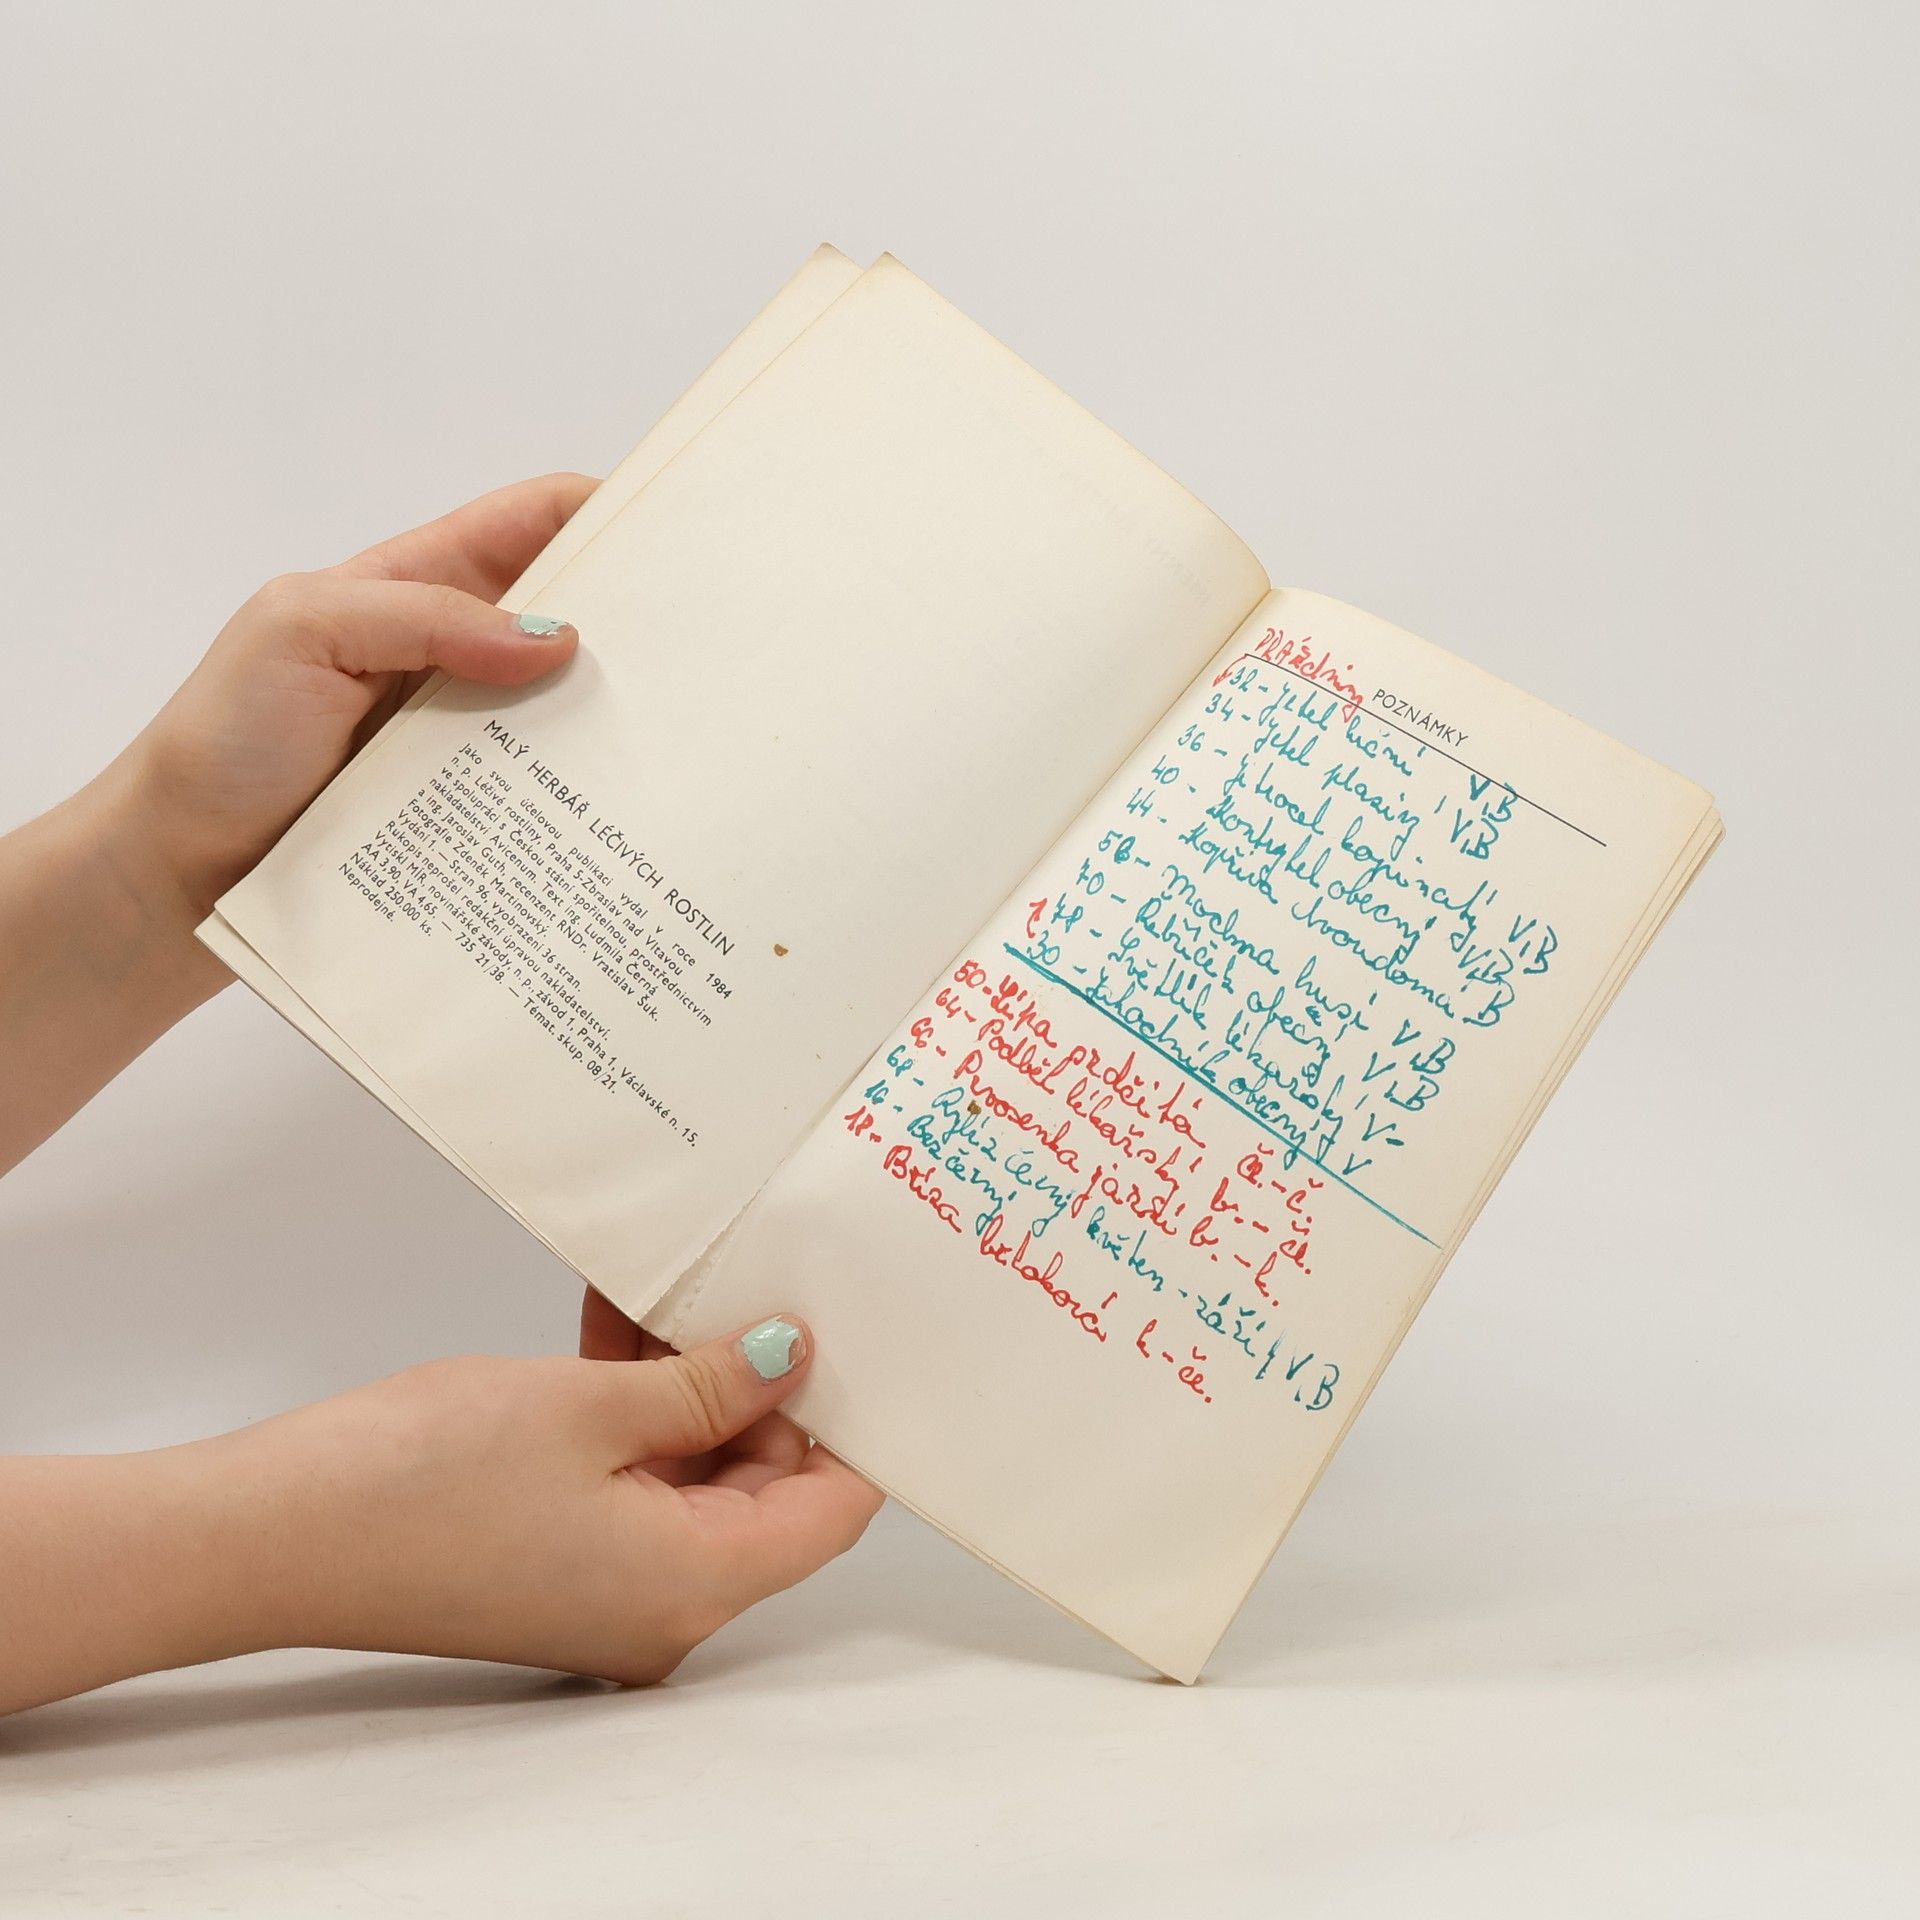 MALÝ HERBÁŘ LÉČIVÝCH ROSTLIN
Jako svou účelovou publikaci vydal v roce 1984
n. p. Léčivé rostliny, Praha 5-Zbraslav nad Vltavou
ve spolupráci s Českou státní spořitelnou, prostřednictvím
nakladatelství Avicenum. Text ing. Ludmila Černá
a ing. Jaroslav Guth, recenzent RNDr. Vratislav Šuk.
Fotografie Zdeněk Martinovský.
Vydání 1. — Stran 96, vyobrazení 36 stran.
Rukopis neprošel redakční úpravou nakladatelství.
Vytiskl MÍR, novinářské závody, n. p., závod 1, Praha 1, Václavské n. 15.
AA 3,90, VA 4,65. — 735 21/38. — Témat. skup. 08/21.
Náklad 250.000 ks.
Neprodejné.
PRÁzdniny
POZNÁMKY
32 - Jetel luční V,B
34 - Jetel plazivý V,B
36 - Jitrocel kopinatý V,B
40 - Kontryhel obecný V,B
44 - Kopřiva dvoudomá B
56 - Mochna husí V,B
70 - Řebříček obecný V,B
78 - Světlík lékařský V-
30 - Jahodník obecný V
50 - Lípa srdčitá če.-č.
64 - Podběl lékařský b. - če.
66 - Prvosenka jarní b. - k.
68 - Rybíz černý květen - září / V,B
16 - Bez černý
18 - Bříza bělokorá k - če.